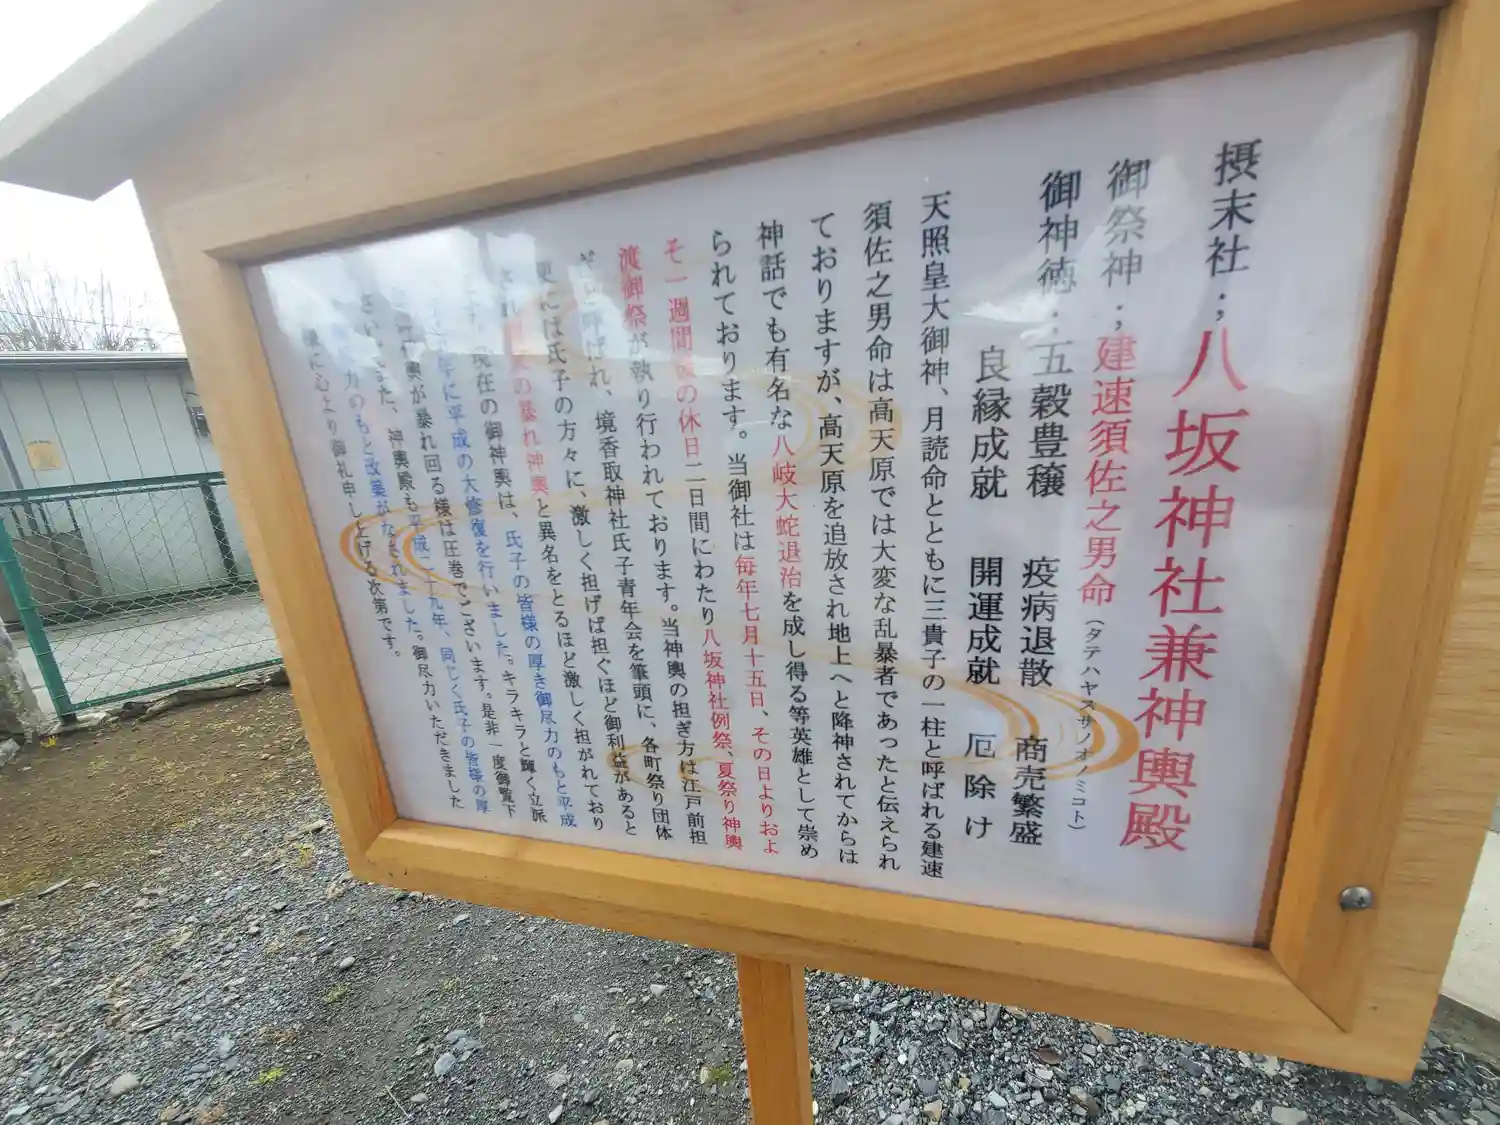 摂末社；八坂神社兼神輿殿
御祭神；建速須佐之男命（タテハヤスサノオノミコト）
御神徳；五穀豊穣　疫病退散　商売繁盛
良縁成就　開運成就　厄除け
天照皇大御神、月読命とともに三貴子の一柱と呼ばれる建速
須佐之男命は高天原では大変な乱暴者であったと伝えられ
ておりますが、高天原を追放され地上へと降神されてからは
神話でも有名な八岐大蛇退治を成し得る等英雄として崇め
られております。当御社は毎年七月十五日、その日よりおよ
そ一週間後の休日二日間にわたり八坂神社例祭、夏祭り神輿
渡御祭が執り行われております。当神輿の担ぎ方は江戸前担
ぎと呼ばれ、境香取神社氏子青年会を筆頭に、各町祭り団体
更には氏子の方々に、激しく担げば担ぐほど御利益があると
され の暴れ神輿と異名をとるほど激しく担がれており
現在の御神輿は、氏子の皆様の厚き御尽力のもと平成
年に平成の大修復を行いました。キラキラと輝く立派
神輿が暴れ回る様は圧巻でございます。是非一度御覧下
さい。また、神輿殿も平成二十九年、同じく氏子の皆様の厚
力のもと改築がなされました。御尽力いただきました
様に心より御礼申し上げる次第です。